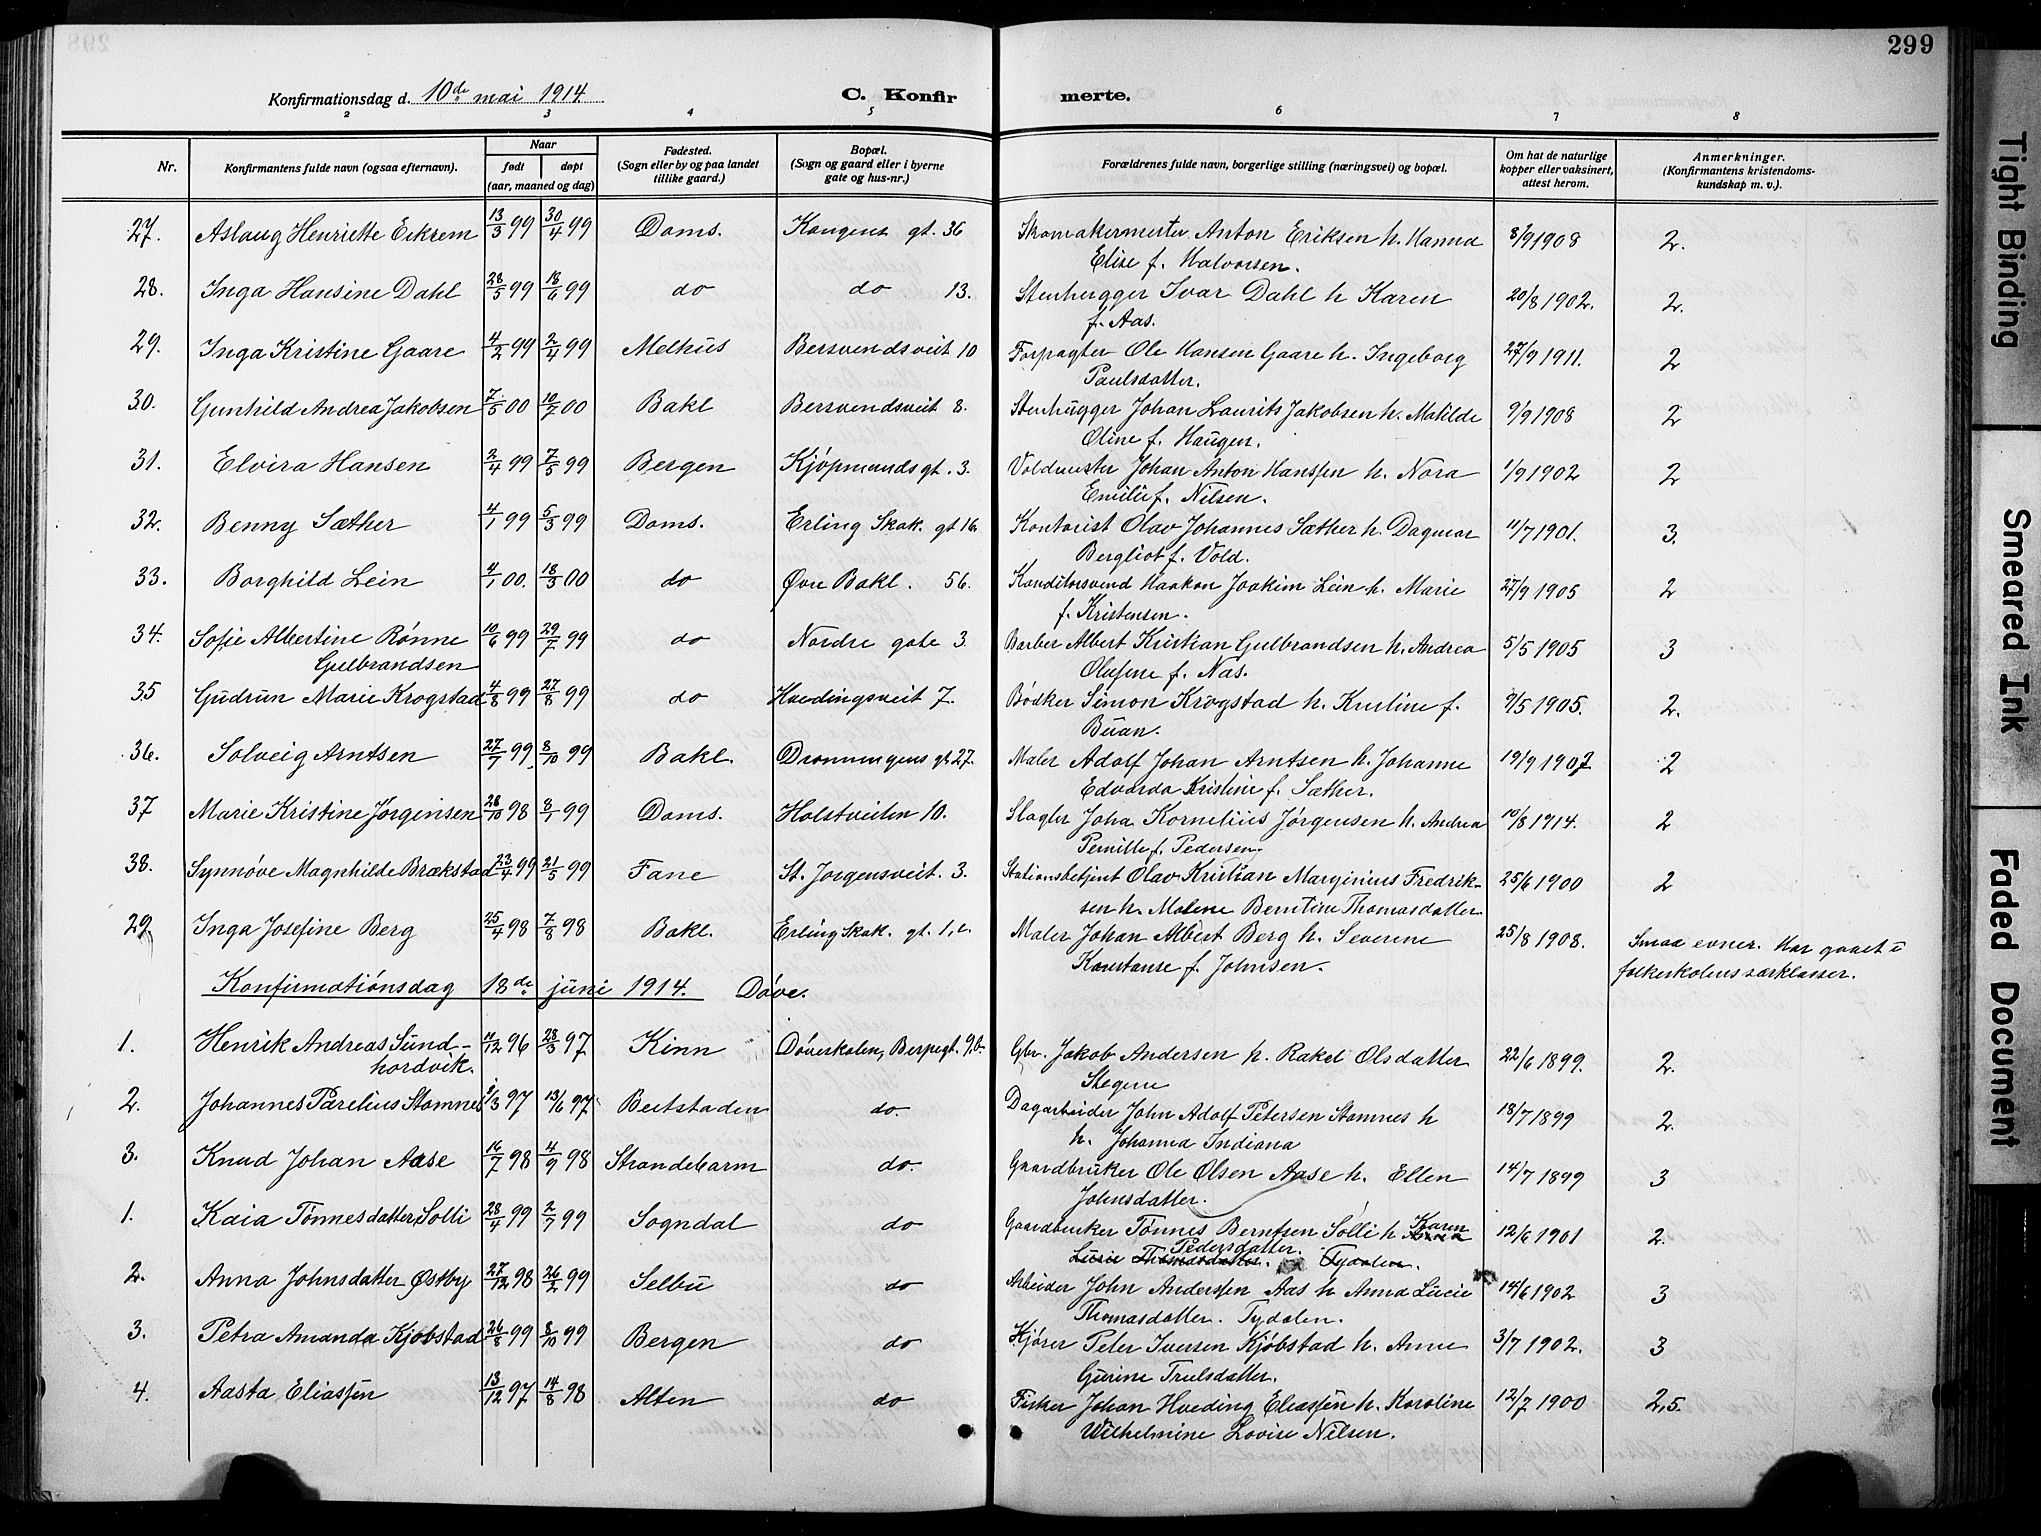 299
Konfirmationsdag d. 10de mai 1914
C. Konfirmerte.
2 3 4 5 6 7 8
Nr. Konfirmantens fulde navn (ogsaa efternavn). Naar født døpt (aar, maaned og dag) Fødested. (Sogn eller by og paa landet tillike gaard.) Bopæl. (Sogn og gaard eller i byerne gate og hus-nr.) Forældrenes fulde navn, borgerlige stilling (næringsvei) og bopæl. Om hat de naturlige kopper eller vaksinert, attest herom. Anmerkninger. (Konfirmantens kristendomskundskap m. v.).
27. Aslaug Henriette Eikrem 13/3 99 30/4 99 Doms. Kongens gt. 36 Skomakermester Anton Eriksen h. Hanna 8/9 1908 2.
Elise f. Halvorsen.
28. Inga Hansine Dahl 28/5 99 18/6 99 do do 13. Stenhugger Ivar Dahl h Karen 20/8 1902. 2.
f. Aas.
29. Inga Kristine Gaare 4/2 99 2/4 99 Melhus Bersvendsveit 10 Forpagter Ole Hansen Gaare h. Ingeborg 27/9 1911. 2
Paulsdatter.
30. Gunhild Andrea Jakobsen 7/5 00 10/7 00 Bakl Bersvendsveit 8. Stenhugger Johan Laurits Jakobsen h. Matilde 9/9 1908 2
Oline f. Haugen.
31. Elvira Hansen 2/4 99 7/5 99 Bergen Kjøpmandsgt. 3. Voldmester Johan Anton Hanssen h. Nora 1/9 1902 2
Emilie f. Nilsen.
32. Benny Sæther 4/1 99 5/3 99 Doms. Erling Skak. gt 16. Kontorist Olav Johannes Sæther h. Dagmar 11/7 1901. 3.
Bergliot f. Vold.
33. Borghild Lein 4/1 00. 18/3 00 do Øvre Bakl. 56. Konditorsvend Haakon Joakim Lein h. Marie 27/9 1905 2
f. Kristensen.
34. Sofie Albertine Rønne 10/6 99 29/7 99 do Nordre gate 3. Barber Albert Kristian Gulbrandsen h. Andrea 5/5 1905 3
Gulbrandsen Olufine f. Nas.
35 Gudrun Marie Krogstad 4/8 99 27/8 99 do Hvedingsveit 7. Bødker Simon Krogstad h. Kristine f. 9/5 1905. 2.
Buan.
36. Solveig Arntsen 27/7 99. 8/10 99 Bakl. Dronningens gt 27. Maler Adolf Johan Arntsen h. Johanne 19/9 1907 2
Edvarda Kristine f. Sæther.
37 Marie Kristine Jørgensen 28/10 98 8/1 99 Doms. Holstveiten 10. Slagter Joha Kornelius Jørgensen h. Andrea 10/8 1914. 2
Pernille f. Pedersen.
38. Synnøve Magnhilde Brækstad 23/4 99 21/5 99 Fane St. Jørgensveit. 3. Stationsbetjent Olav Kristian Marginius Fredrik- 25/6 1900 2
sen h. Malene Berntine Thomasdatter.
29. Inga Josefine Berg 25/4 98 7/8 98 Bakl. Erling Skak. gt. Maler Johan Albert Berg h. Severine 25/8 1908. Smaa evner. Har gaaet i
Konstanse f. Johnsen. folkeskolens særklasser.
Konfirmationsdag 18de juni 1914. Døve.
1. Henrik Andreas Sund- 11/12 96 28/3 97 Kinn Døveskolen, Bispegt. 9.b. Gbr. Jakob Andersen h. Rakel Olsdatter 22/6 1899. 2.
hordvik. Stegene
2. Johannes Parelius Stamnes 8/3 97 13/6 97 Beitstaden do. Dagarbeider John Adolf Petersen Stamnes h 18/7 1899 2.
h. Johanna Indiana
3. Knud Johan Aase 16/7 98 4/9 98 Strandebarm do. Gaardbruker Ole Olsen Aase h. Ellen 14/7 1899 3
Johnsdatter.
1. Kaia Tønnesdatter Solli 28/4 99 2/7 99 Sogndal do Gaardbruker Tønnes Berntsen Solli h Karen Anna 12/6 1901 2.
Pedersdatter. Lucie Thomasdatter. Tydalen.
2. Anna Johnsdatter Østby 27/12 98 26/2 99 Selbu do Arbeider John Anderssen Aas h Anna Lucie 14/6 1902 3
Thomasdatter. Tydalen.
3. Petra Amanda Kjøbstad 26/8 99 8/10 99 Bergen do Kjører Peter Iversen Kjøbstad h. Anne 3/7 1902. 3
Gurine Trulsdatter.
4. Aasta Eliassen 13/12 97 14/8 98 Alten do Fisker Johan Hveding Eliassen h. Karoline 12/7 1900 2,5.
Wilhelmine Lovise Nilsen.
Tight Binding
Smeared Ink
Faded Document